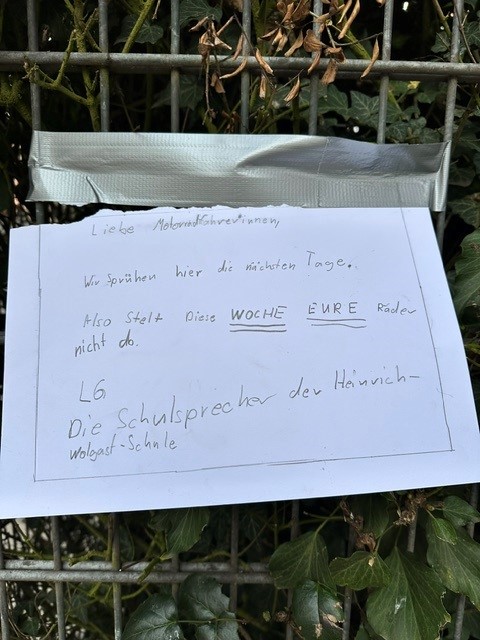 Liebe Motorradfahrer*innen,
Wir Sprühen hier die nächsten Tage.
Also Stelt Diese WOCHE EURE Räder
nicht do.
LG
Die Schulsprecher der Heinrich-
Wolgast-Schule